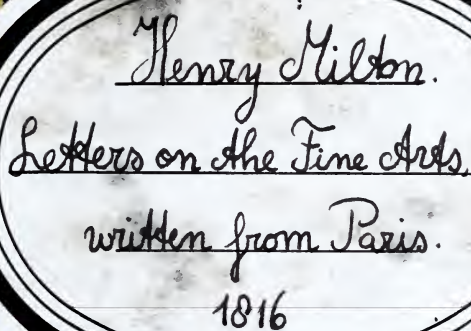 Henry Milton.
Letters on the Fine Arts,
written from Paris.
1816